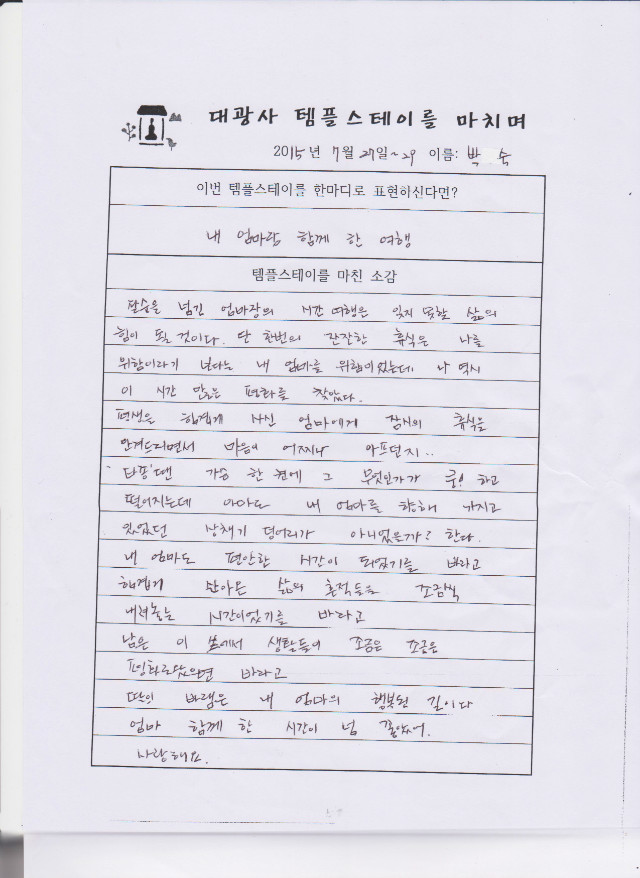 대광사 템플스테이를 마치며
2015년 7월 27일~29 이름: 박 숙
이번 템플스테이를 한마디로 표현하신다면?
내 엄마랑 함께 한 여행
템플스테이를 마친 소감
팔순을 넘긴 엄마랑의 시간 여행은 잊지 못할 삶의
힘이 될 것이다. 단 한번의 잔잔한 휴식은 나를
위함이라기 보다는 내 엄마를 위함이었는데 나 역시
이 시간 많은 평화를 찾았다.
평생을 힘겹게 사신 엄마에게 잠시의 휴식을
안겨드리면서 마음이 어찌나 아프던지..
타종땐 가슴 한 켠에 그 무엇인가가 쿵! 하고
떨어지는데 아마도 내 엄마를 향해 가지고
있었던 상채기 덩어리가 아니었은가? 한다.
내 엄마도 편안한 시간이 되었기를 바라고
힘겹게 살아온 삶의 흔적들을 조금씩
내려놓는 시간이었기를 바라고
남은 이 생에서 생활들이 조금은 조금은
평화로왔으면 바라고
딸의 바램은 내 엄마의 행복된 길이다
엄마 함께 한 시간이 넘 좋았어.
사랑해요.